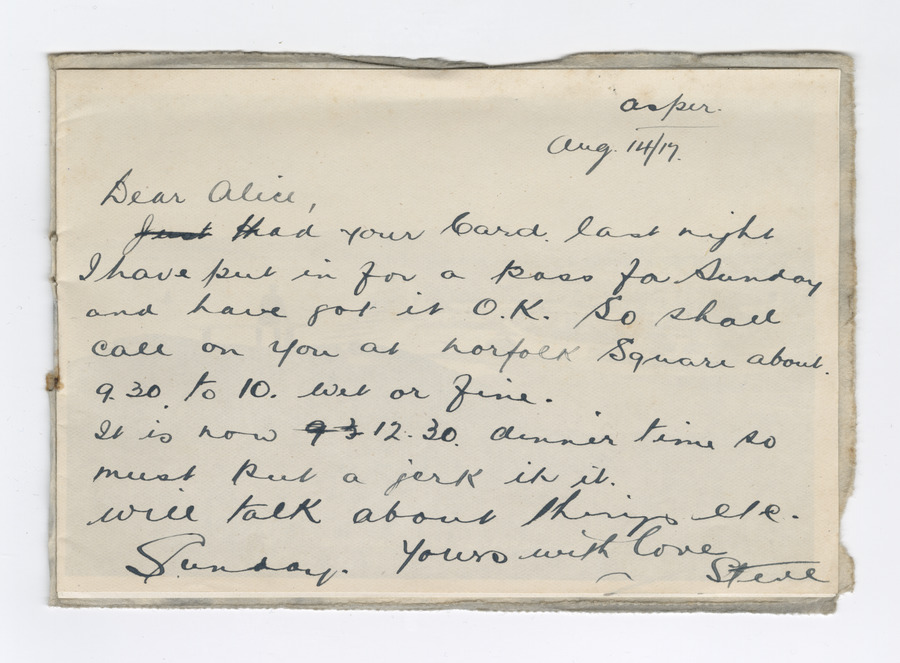 as per.
Aug. 14/17.
Dear Alice,
Just Had your Card. last night
I have put in for a pass fo Sunday
and have got it O.K. So shall
call on you at Norfolk Square about.
9.30. to 10. wet or fine.
It is now 9 3 12.30. dinner time so
must put a jerk in it.
will talk about things etc.
Sunday. Yours with love
Steve